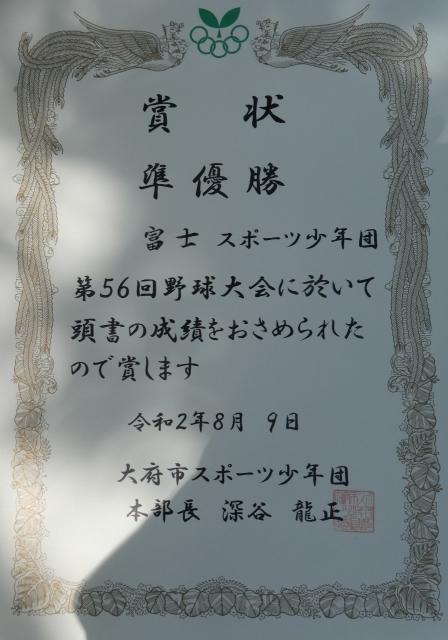 賞状
準優勝
富士 スポーツ少年団
第56回野球大会に於いて
頭書の成績をおさめられた
ので賞します
令和2年8月 9日
大府市スポーツ少年団
本部長 深谷 龍正